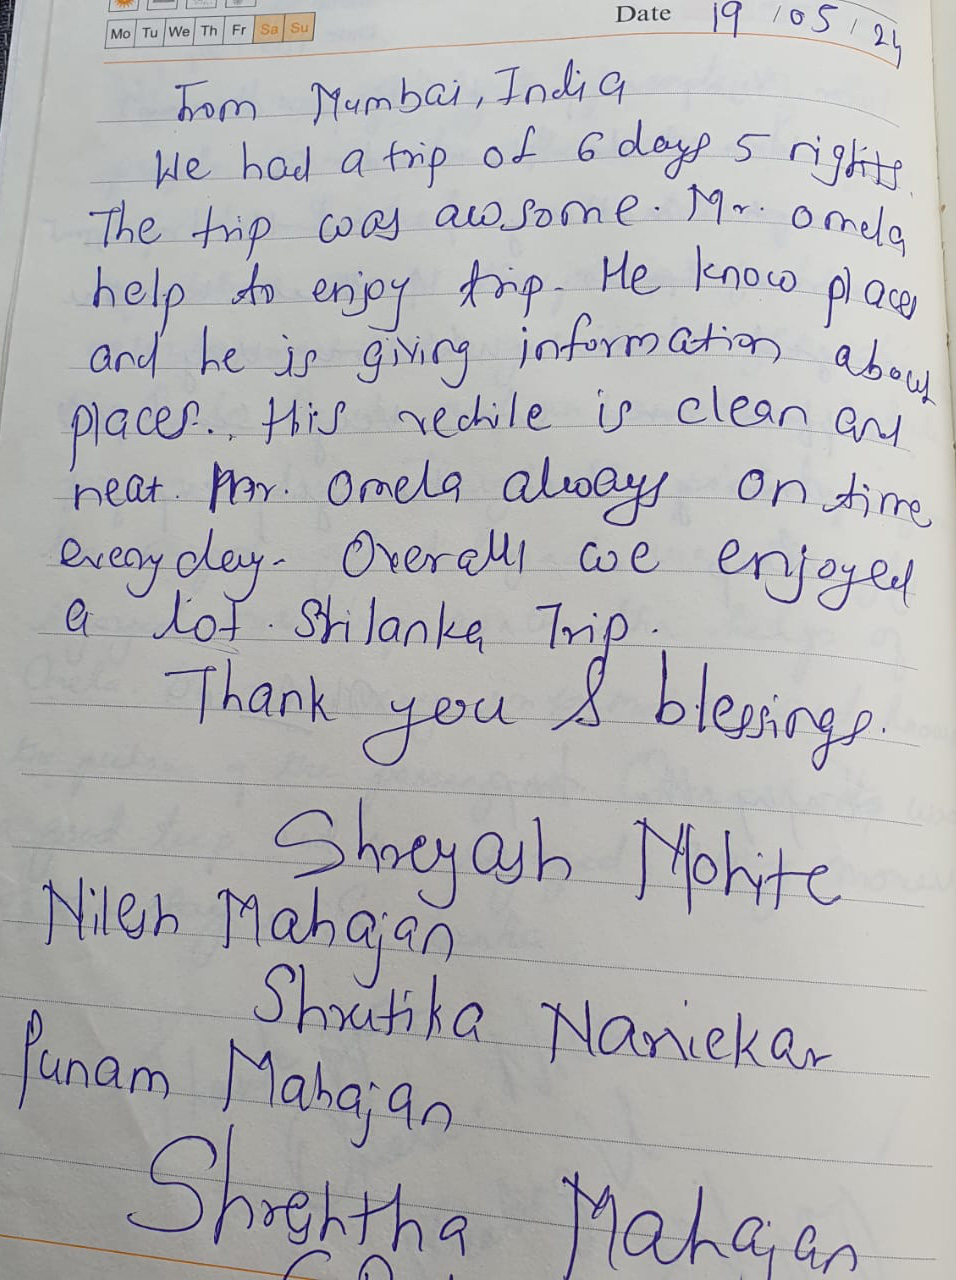 Mo Tu We Th Fr Sa Su
Date 19 / 05 / 24
From Mumbai, India
We had a trip of 6 days 5 nights.
The trip was awsome. Mr. Omela
help to enjoy trip. He know places
and he is giving information about
places. His vechile is clean and
neat. Mr. Omela always on time
every day. Overall we enjoyed
a lot. Srilanka Trip.
Thank you & blessings.
Shreyash Mohite
Nilesh Mahajan
Shrutika Narvekar
Punam Mahajan
Shreshtha Mahajan